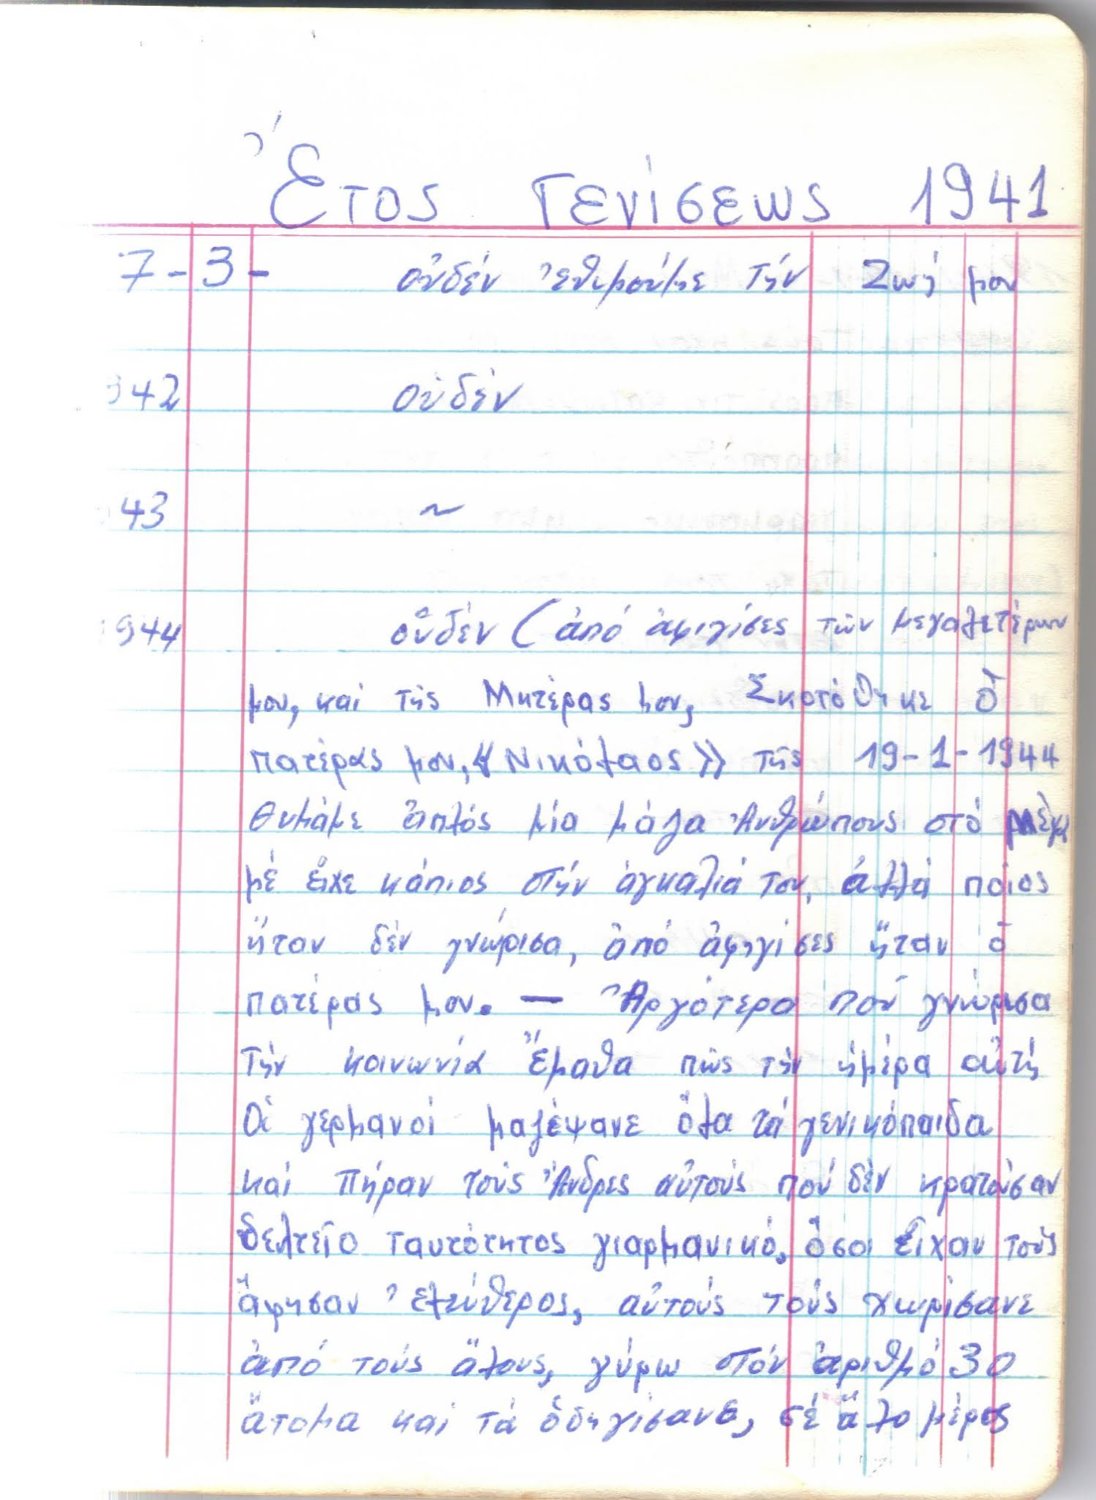 Ἔτος Γενίσεως 1941
7-3- οὐδέν ἐθιμούμε τήν Ζωή μου
942 οὐδέν
43 ~
1944 οὐδέν (ἀπό ἀφιγίσες τῶν μεγαλετέρων
μου, καί τῆς Μητέρας μου, Σκοτόθηκε ὁ
πατέρας μου, «Νικόλαος» τῆς 19-1-1944
Θυμάμε ἁπλός μία μάζα Ἀνθρώπους στό
μέ εἶχε κάπιος στήν ἀγκαλιά του, ἀλλά ποίος
ἤταν δέν γνώρισα, ἀπό ἀφηγίσες ἤταν ὁ
πατέρας μου. — Ἀργότερα πού γνώρισα
τήν κοινωνία Ἔμαθα πώς τήν ἡμέρα αὐτή
Οἱ γερμανοί μαζέψανε ὅλα τά γενικόπαιδα
καί πήραν τούς Ἄνδρες αὐτούς πού δέν κρατούσαν
δελτεῖο ταυτότητος γιαρμανικό, ὅσοι Εἴχαν τούς
ἄφησαν Ἐλεύθερος, αὐτούς τούς χωρίσανε
ἀπό τούς ἄλους, γύρω στόν ἀριθμό 30
ἄτομα καί τά ὁδηγίσανε, σέ ἄλο μέρος